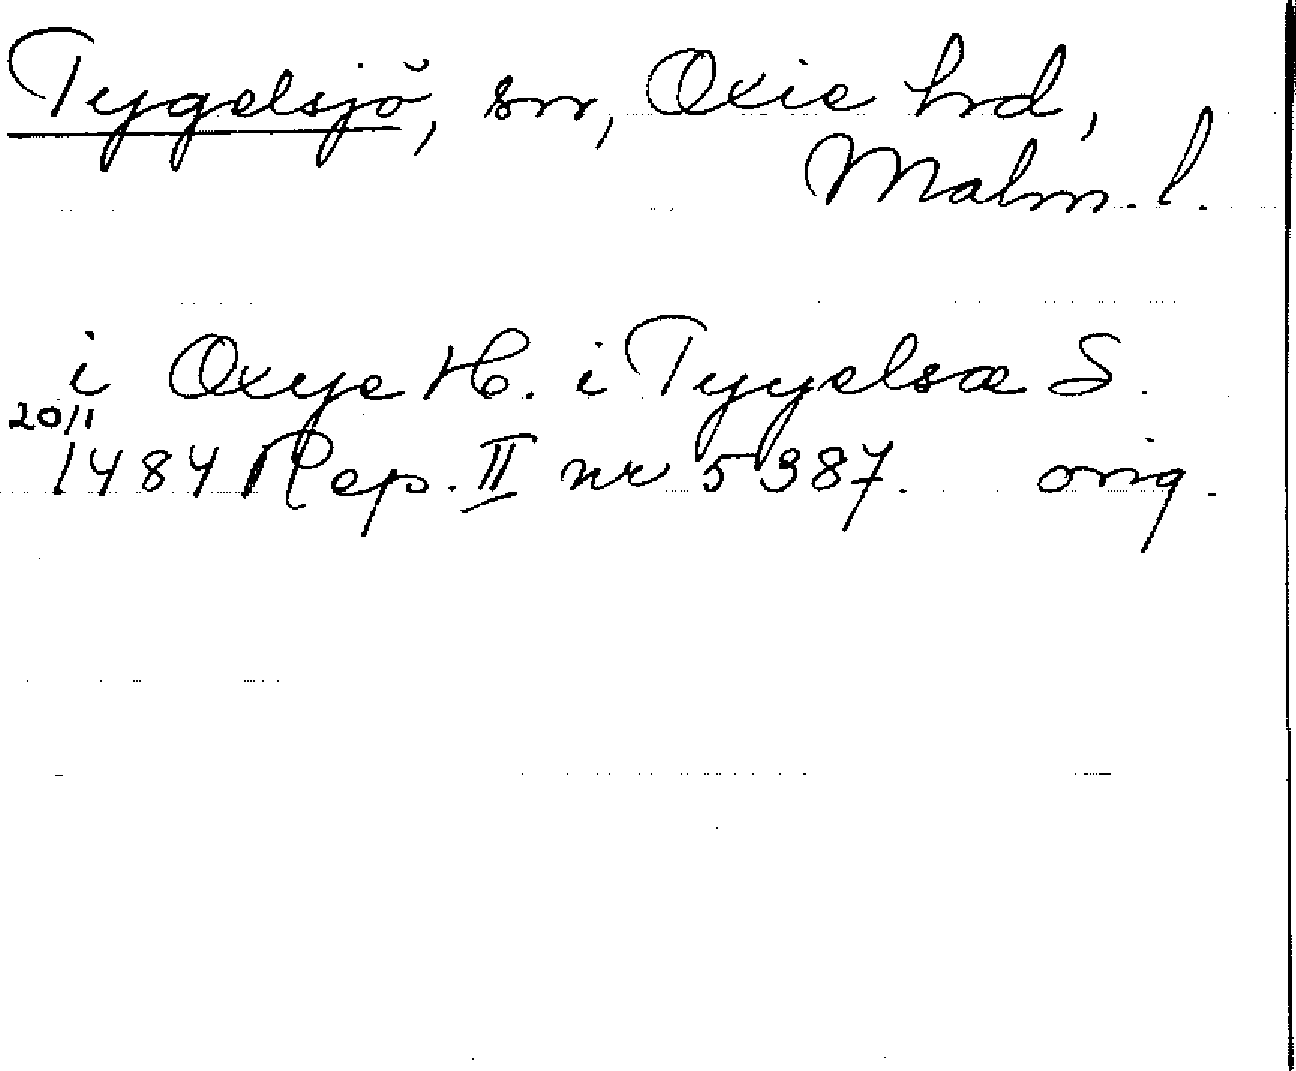 Tygelsjö, sn, Oxie hd,
Malm. l.
i Oxye H. i Tyyelsæ S.
20/1
1484 Rep. II nr 5387. orig.